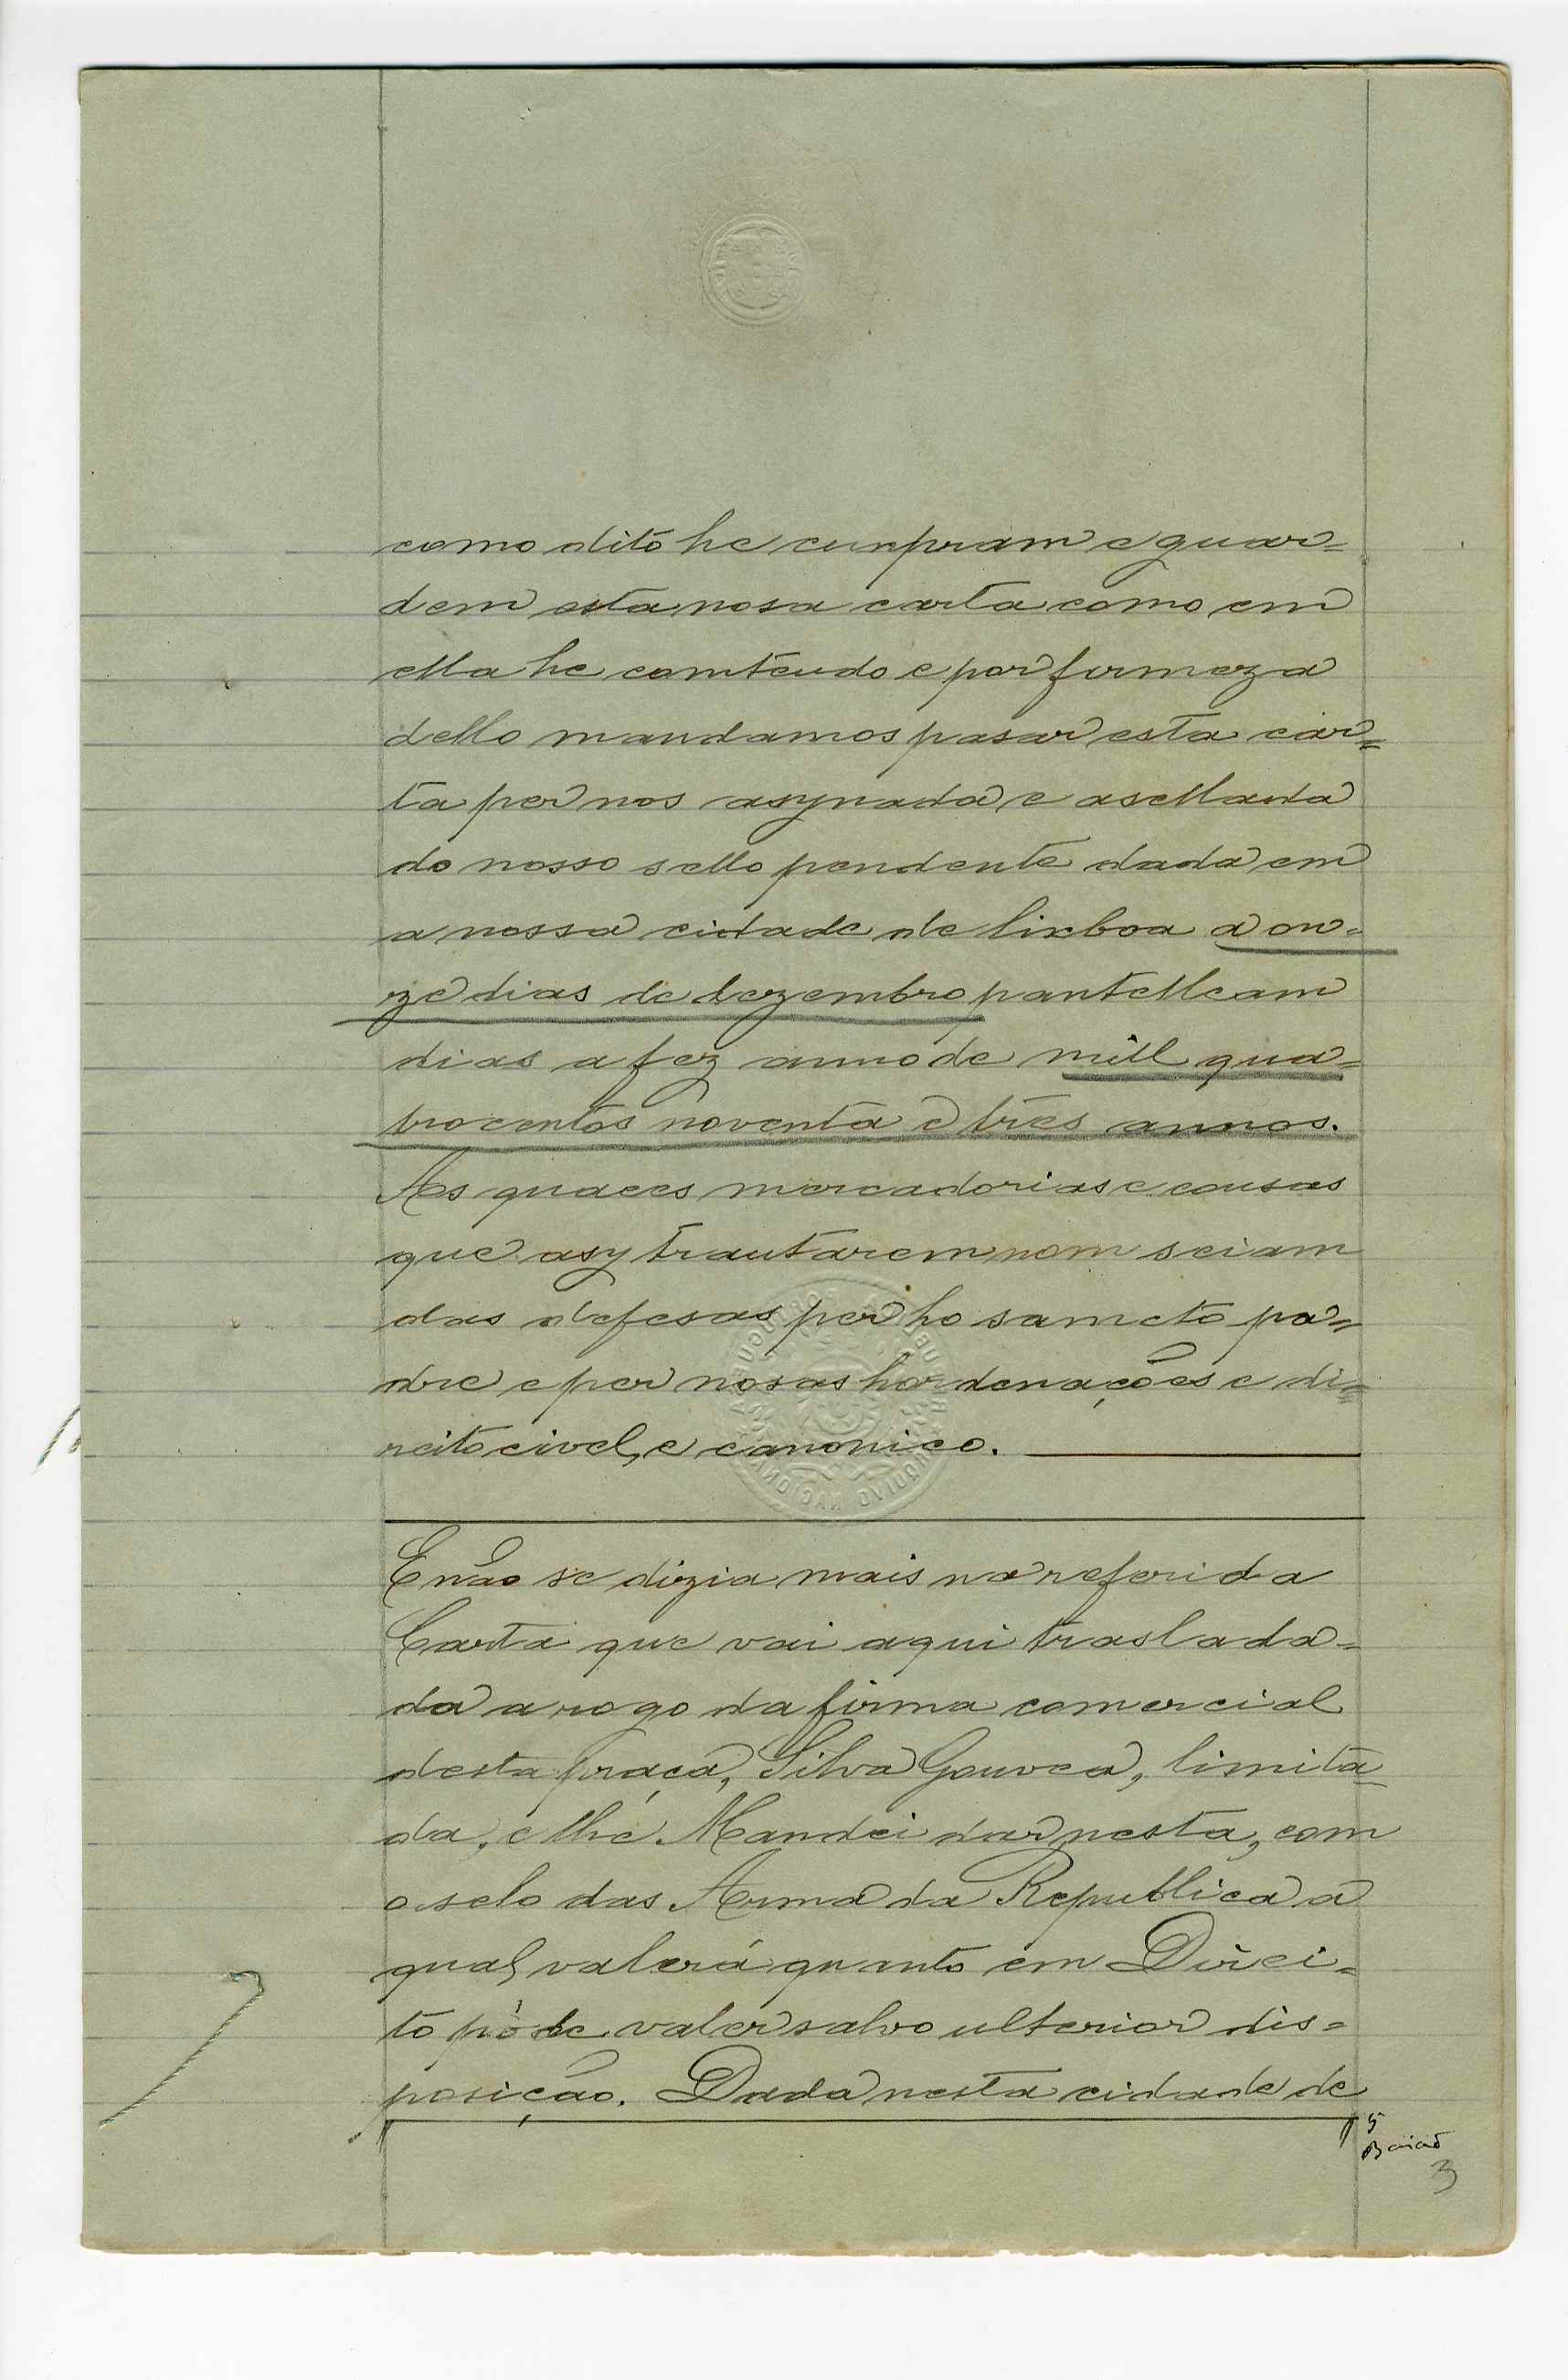 como dito he cunpram e guar=
dem esta nosa carta como em
ella he comteudo e por firmeza
dello mandamos pasar esta car=
ta per nos asynada e asellada
do nosso sello pendente dada em
a nossa cidade de lixboa a on=
ze dias de dezembro pantelleam
dias a fez anno de mill qua=
trocentos noventa e tres annos.
As quaees mercadorias e cousas
que asy trautarem nom seiam
das defesas per ho samcto pa=
dre e per nosas hordenações e di=
reito civel, e canonico.
E não se dizia mais na referida
Carta que vai aqui traslada=
da a rogo da firma comercial
desta praça, Silva Gouvea, limita=
da, e lhe Mandei dar nesta, com
o selo das Arma da Republica a
qual, valerá quanto em Direi=
to póde valer salvo ulterior dis=
posição. Dada nesta cidade de
5
Baião
3